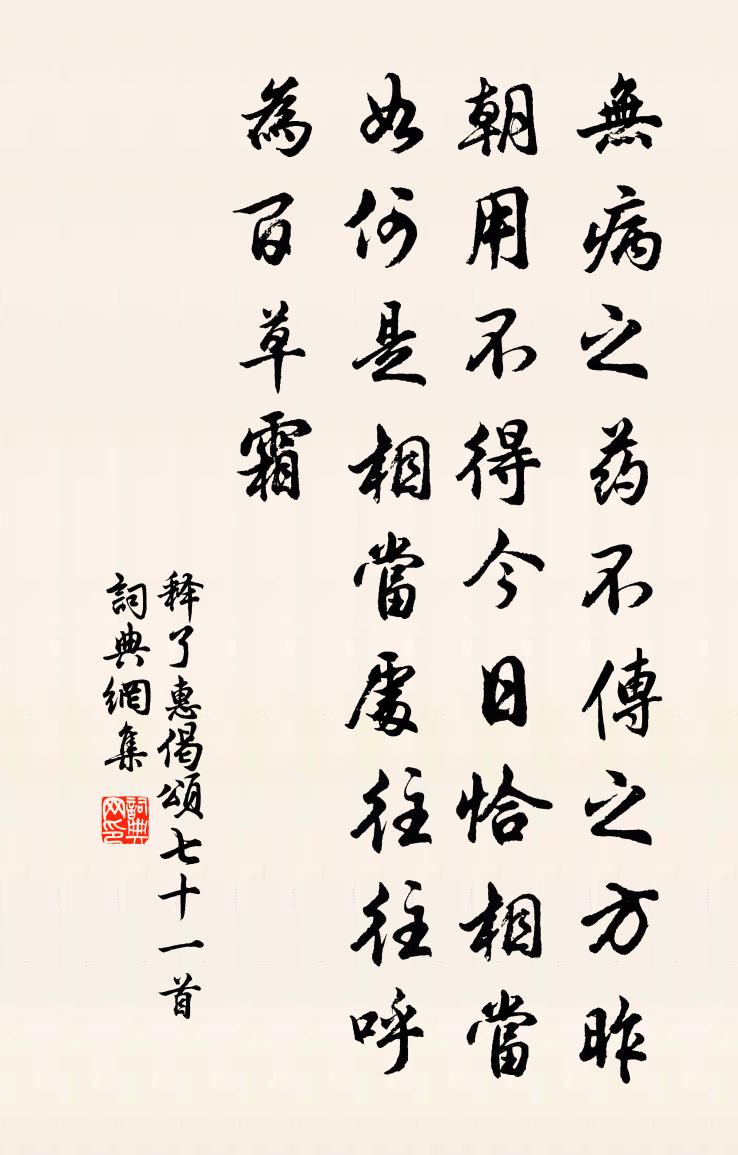 無病之药不傳之方昨
朝用不得今日恰相當
如何是相當處往往呼
為百草霜
释了惠偈頌七十一首
詞典網集
詞典网印